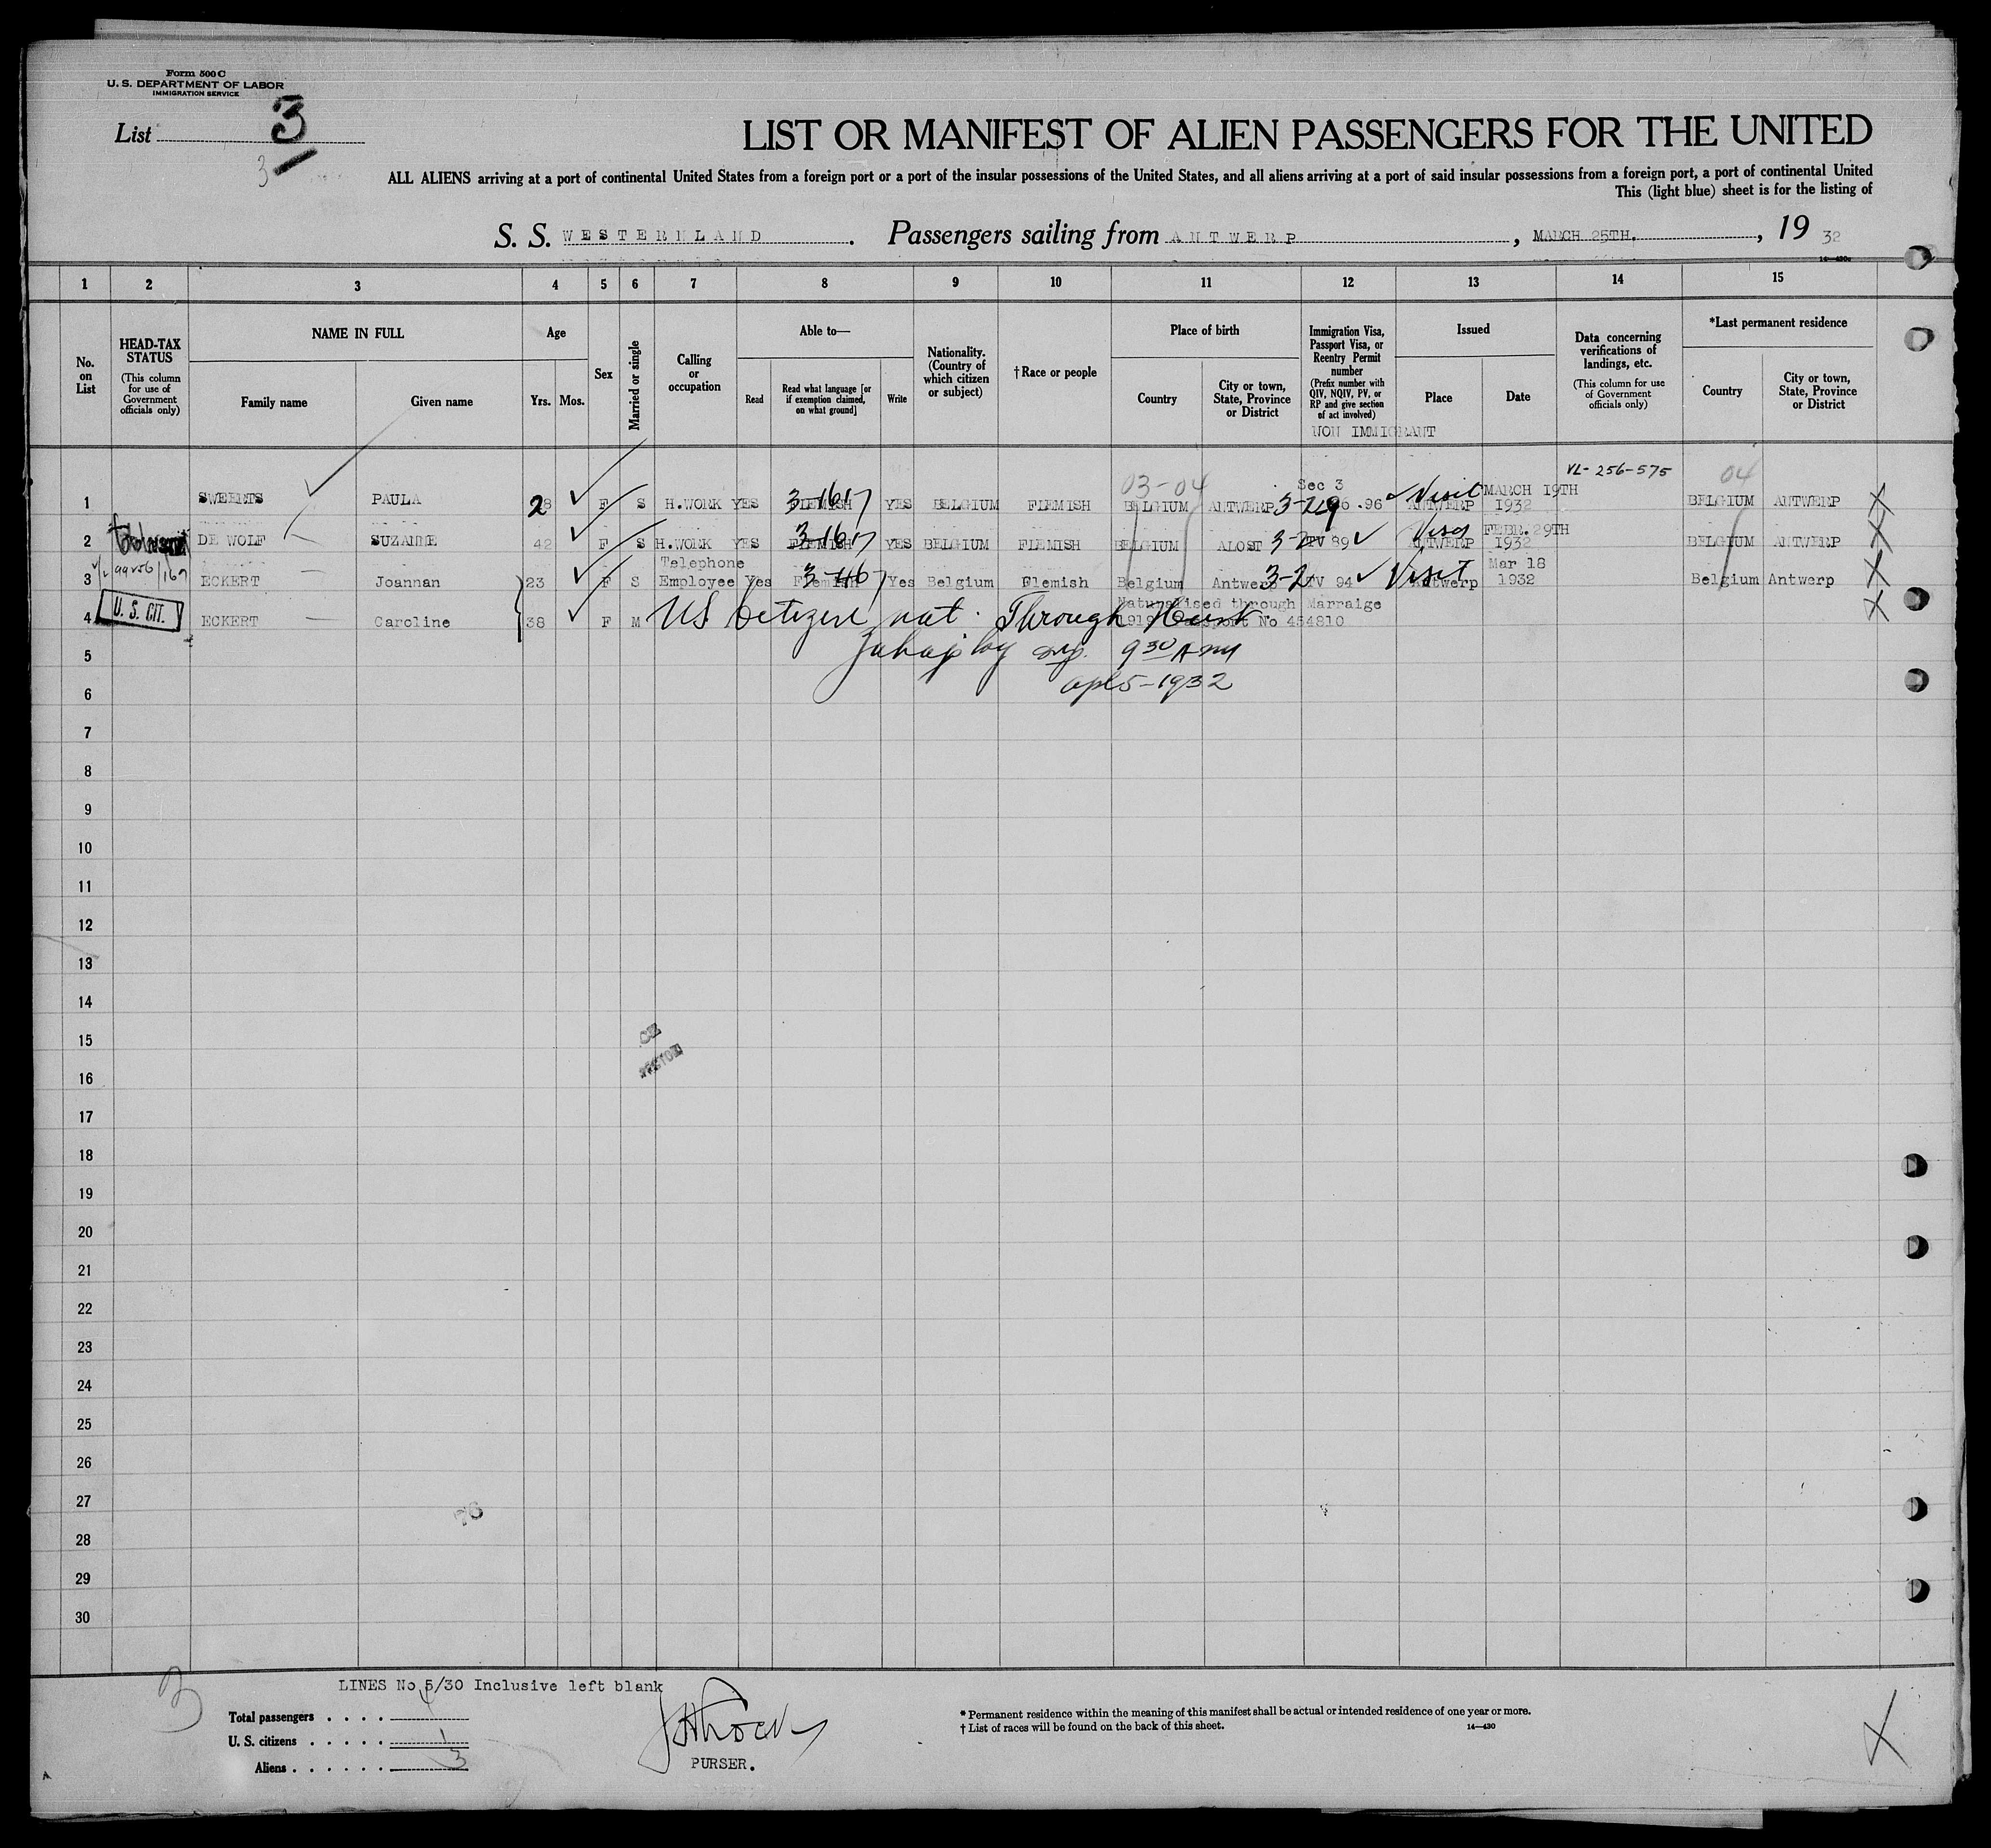 Form 500 C
U. S. DEPARTMENT OF LABOR
IMMIGRATION SERVICE
List 3
3
LIST OR MANIFEST OF ALIEN PASSENGERS FOR THE UNITED
ALL ALIENS arriving at a port of continental United States from a foreign port or a port of the insular possessions of the United States, and all aliens arriving at a port of said insular possessions from a foreign port, a port of continental United
This (light blue) sheet is for the listing of
S. S. WESTERNLAND . Passengers sailing from ANTWERP , MARCH 25TH. , 19 32
1 2 3 4 5 6 7 8 9 10 11 12 13 14 15
No. on List
HEAD-TAX STATUS (This column for use of Government officials only)
NAME IN FULL
Family name Given name
Age
Yrs. Mos.
Sex
Married or single
Calling or occupation
Able to—
Read Read what language [or if exemption claimed, on what ground] Write
Nationality. (Country of which citizen or subject)
† Race or people
Place of birth
Country City or town, State, Province or District
Immigration Visa, Passport Visa, or Reentry Permit number (Prefix number with QIV, NQIV, PV, or RP and give section of act involved)
NON IMMIGRANT
Issued
Place Date
Data concerning verifications of landings, etc. (This column for use of Government officials only)
*Last permanent residence
Country City or town, State, Province or District
VL-256-575
03-04 Sec 3 04
1 SWEERTS PAULA 28 F S H.WORK YES FLEMISH YES BELGIUM FLEMISH BELGIUM ANTWERP .96 Visit ANTWERP MARCH 19TH 1932 BELGIUM ANTWERP
2 DE WOLF SUZANNE 42 F S H.WORK YES FLEMISH YES BELGIUM FLEMISH BELGIUM ALOST PV 89 ANTWERP FEBR. 29TH 1932 BELGIUM ANTWERP
3 ECKERT Joannan 23 F S Telephone Employee Yes Flemish Yes Belgium Flemish Belgium Antwerp PV 94 Visit Antwerp Mar 18 1932 Belgium Antwerp
4 U. S. CIT. ECKERT Caroline 38 F M US Citizen nat. Through Naturalised through Marraige
1919 No 454810
5 9 30 AM
6 Apl 5-1932
7
8
9
10
11
12
13
14
15
16
17
18
19
20
21
22
23
24
25
26
27
28
29
30
76
LINES No 5/30 Inclusive left blank
Total passengers . . . . 4
U. S. citizens . . . . . 1
Aliens . . . . . . 3
PURSER.
* Permanent residence within the meaning of this manifest shall be actual or intended residence of one year or more.
† List of races will be found on the back of this sheet. 14—430